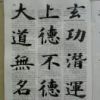 玄功潛運
上德不德
大道無名